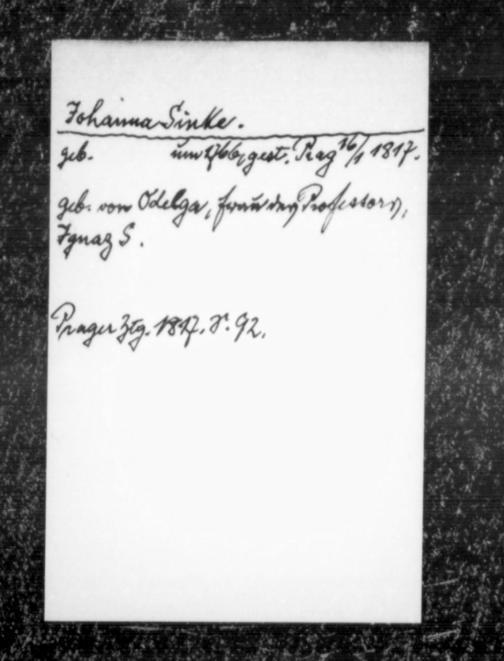 Johanna Sinke.
geb. um 1766, gest. Prag 16/1 1817.
geb. von Odelga, Frau des Professors,
Ignaz S.
Prager Ztg. 1817. S. 92.